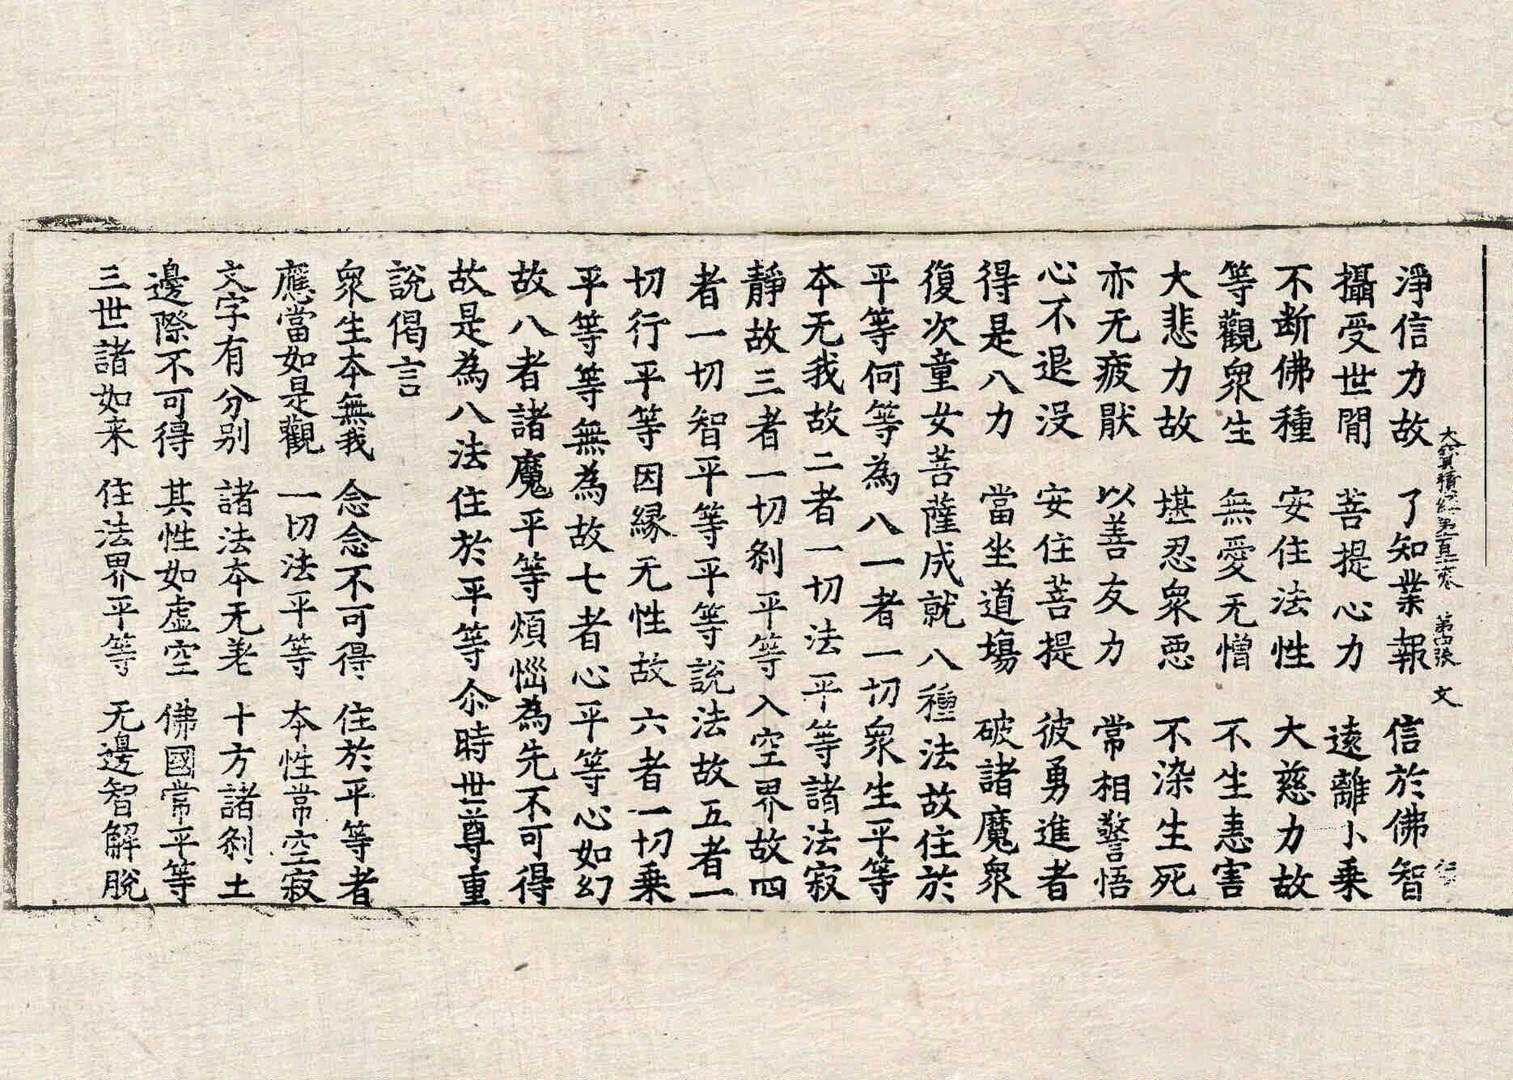 大寶積經第一百卷 第四張 文
淨信力故 了知業報 信於佛智
攝受世間 菩提心力 遠離小乘
不断佛種 安住法性 大慈力故
等觀衆生 無愛无憎 不生恚害
大悲力故 堪忍衆惡 不染生死
亦无疲猒 以善友力 常相警悟
心不退沒 安住菩提 彼勇進者
得是八力 當坐道場 破諸魔衆
復次童女菩薩成就八種法故住於
平等何等為八一者一切衆生平等
夲无我故二者一切法平等諸法寂
靜故三者一切刹平等入空界故四
者一切智平等平等說法故五者一
切行平等因緣无性故六者一切乗
平等等無為故七者心平等心如幻
故八者諸魔平等煩惱為先不可得
故是為八法住於平等尒時世尊重
說偈言
衆生夲無我 念念不可得 住於平等者
應當如是觀 一切法平等 夲性常空寂
文字有分别 諸法夲无差 十方諸刹土
邊際不可得 其性如虛空 佛國常平等
三世諸如来 住法界平等 无邊智解脫